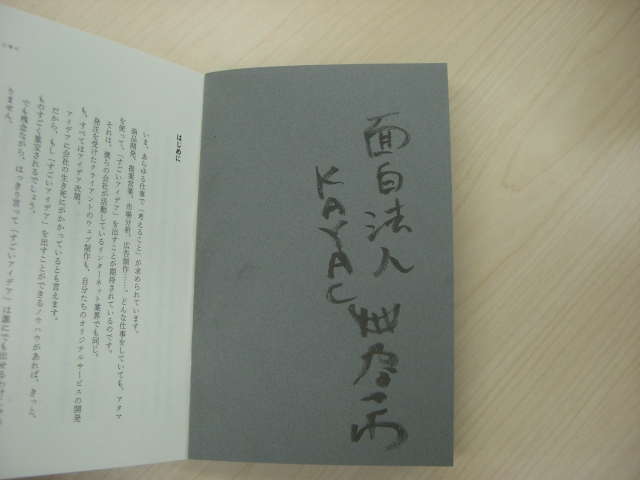 面白法人
KAYAC
はじめに
いま、あらゆる仕事で「考えること」が求められています。
商品開発、提案営業、市場分析、広告制作……。どんな仕事をしていても、アタマ
を使って、「すごいアイデア」を出すことが期待されているのです。
それは、僕らの会社が活動しているインターネット業界でも同じ。
発注を受けたクライアントのウェブ制作も、自分たちのオリジナルサービスの開発
も、すべてはアイデア次第。
アイデアに会社の生き死にがかかっているとも言えます。
だから、もし「すごいアイデア」を出すことができるノウハウがあれば、きっと、
ものすごく重宝されるでしょう。
でも残念ながら、はっきり言って「すごいアイデア」は誰にでも出せるわけ
りません。